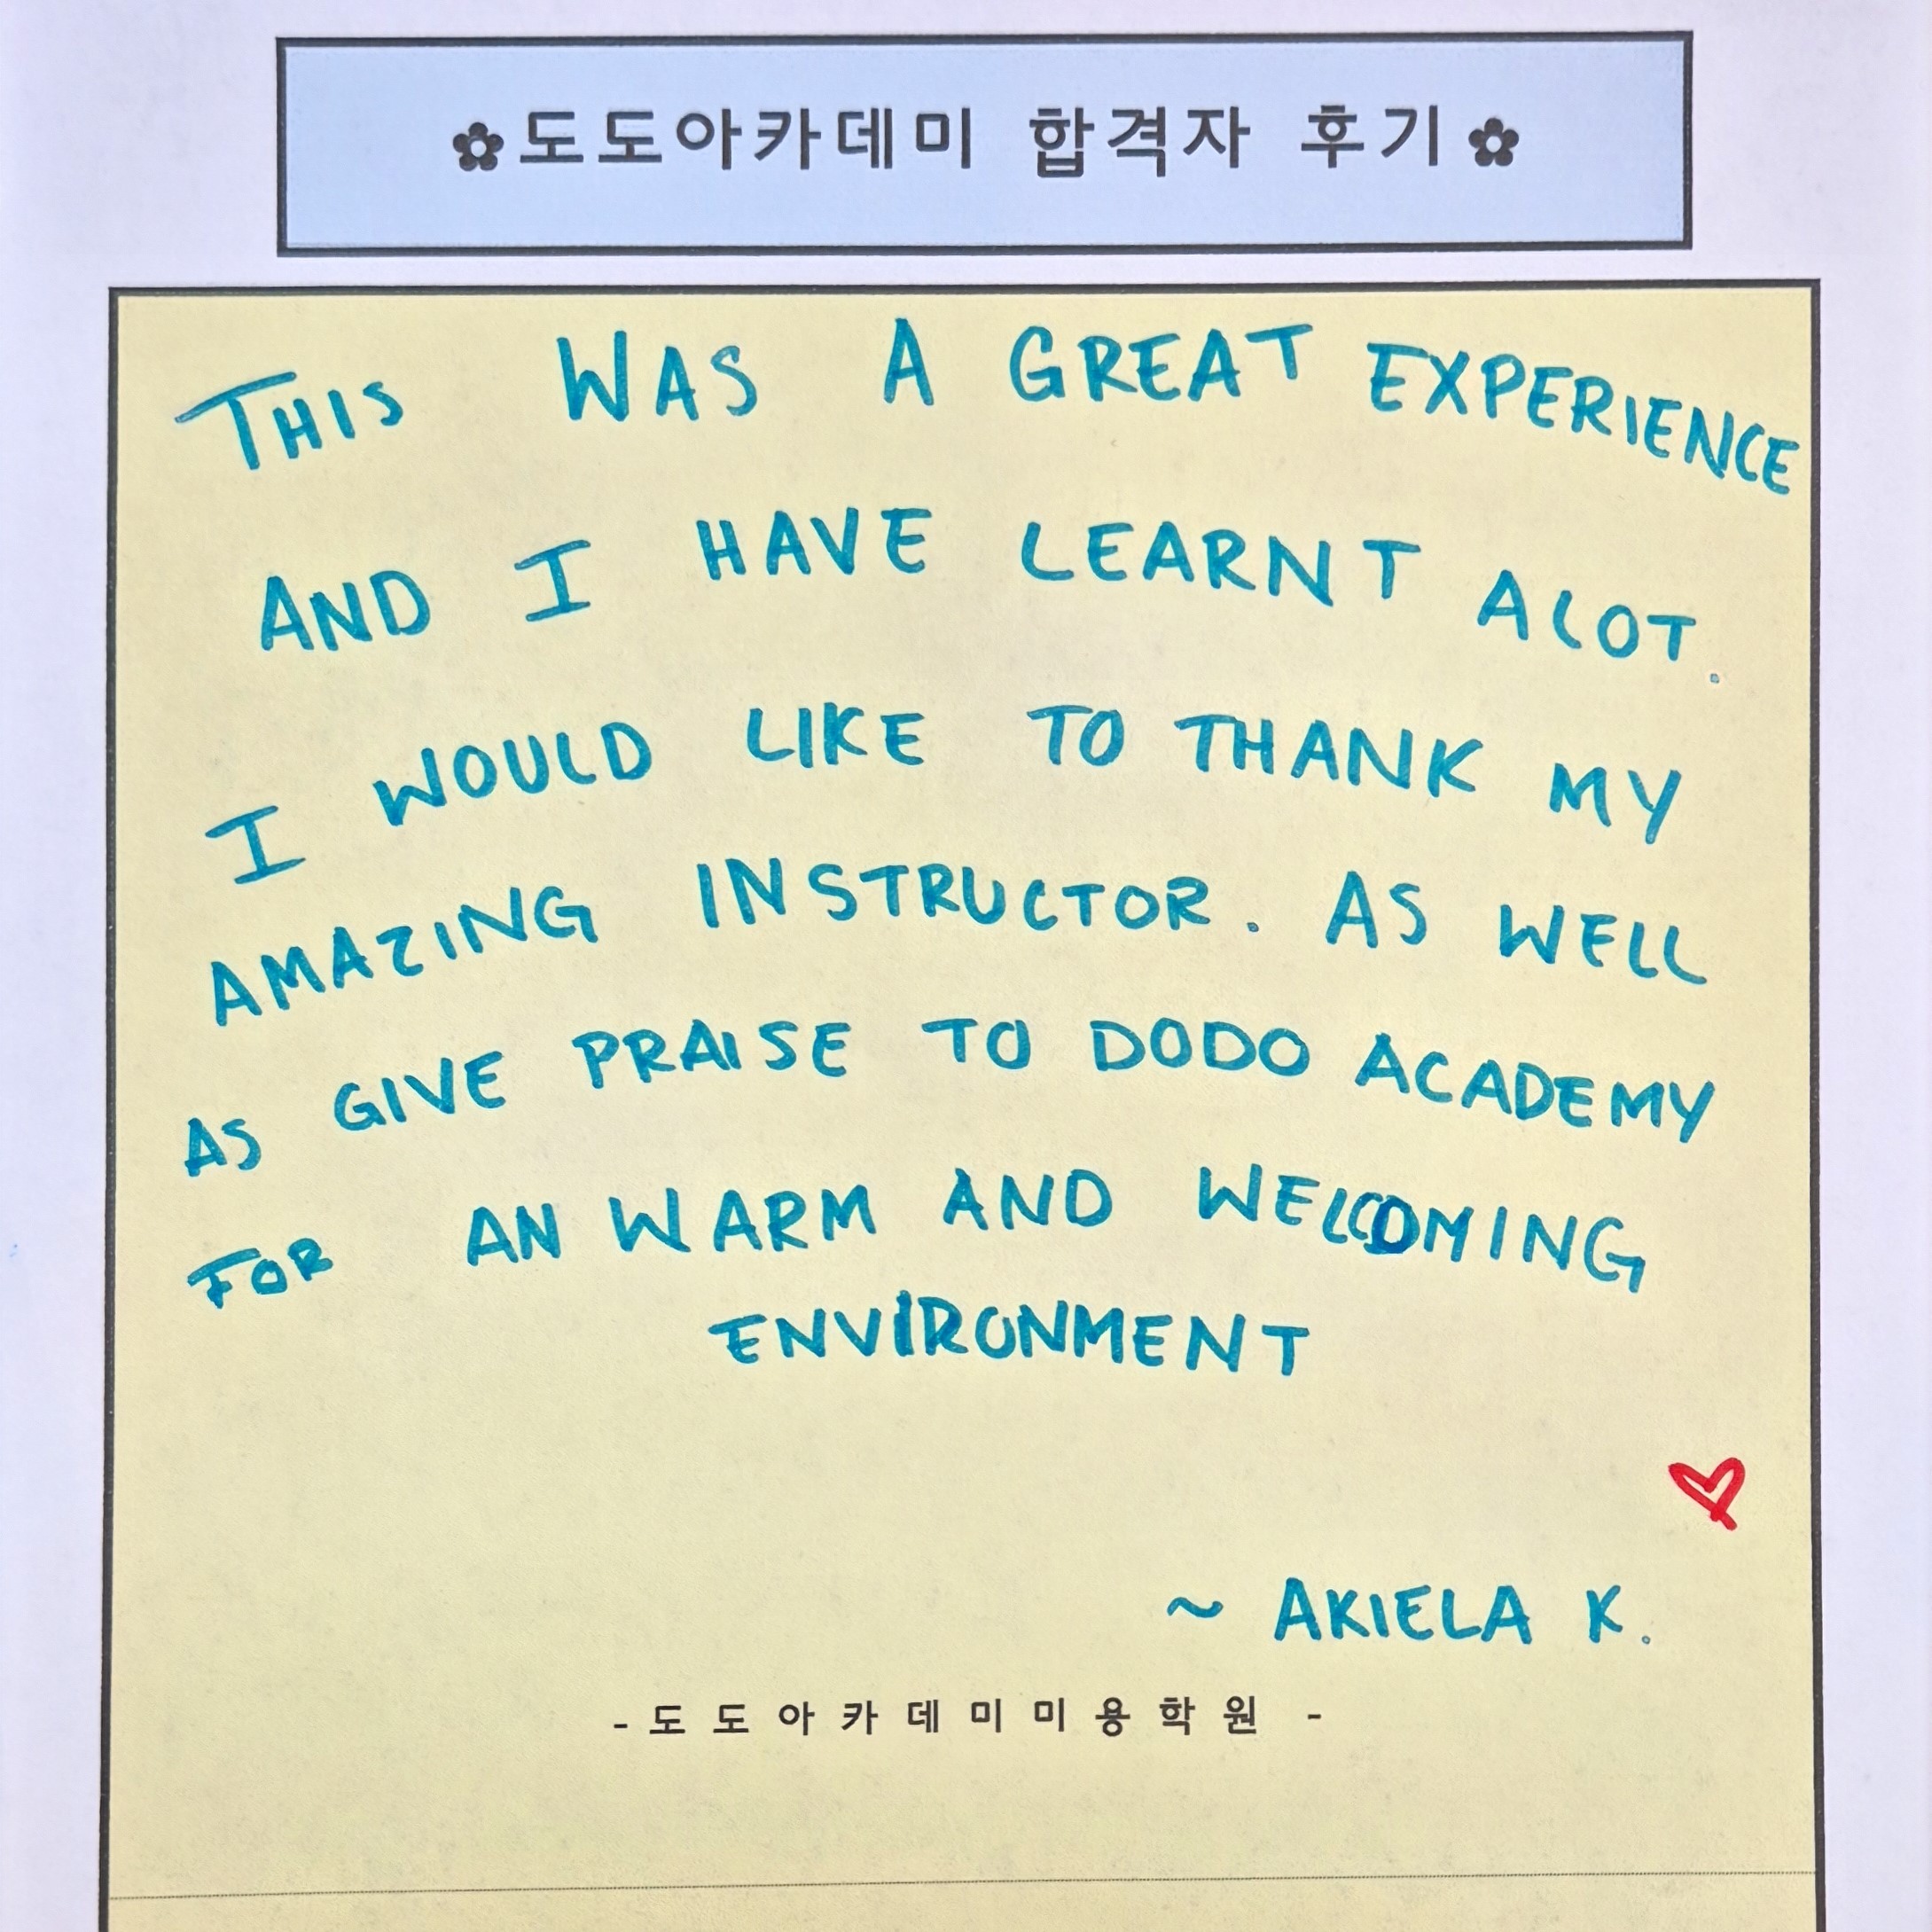 ✿도도아카데미 합격자 후기✿
THIS WAS A GREAT EXPERIENCE
AND I HAVE LEARNT ALOT.
I WOULD LIKE TO THANK MY
AMAZING INSTRUCTOR. AS WELL
AS GIVE PRAISE TO DODO ACADEMY
FOR AN WARM AND WELCOMING
ENVIRONMENT
~ AKIELA K.
- 도도아카데미미용학원 -